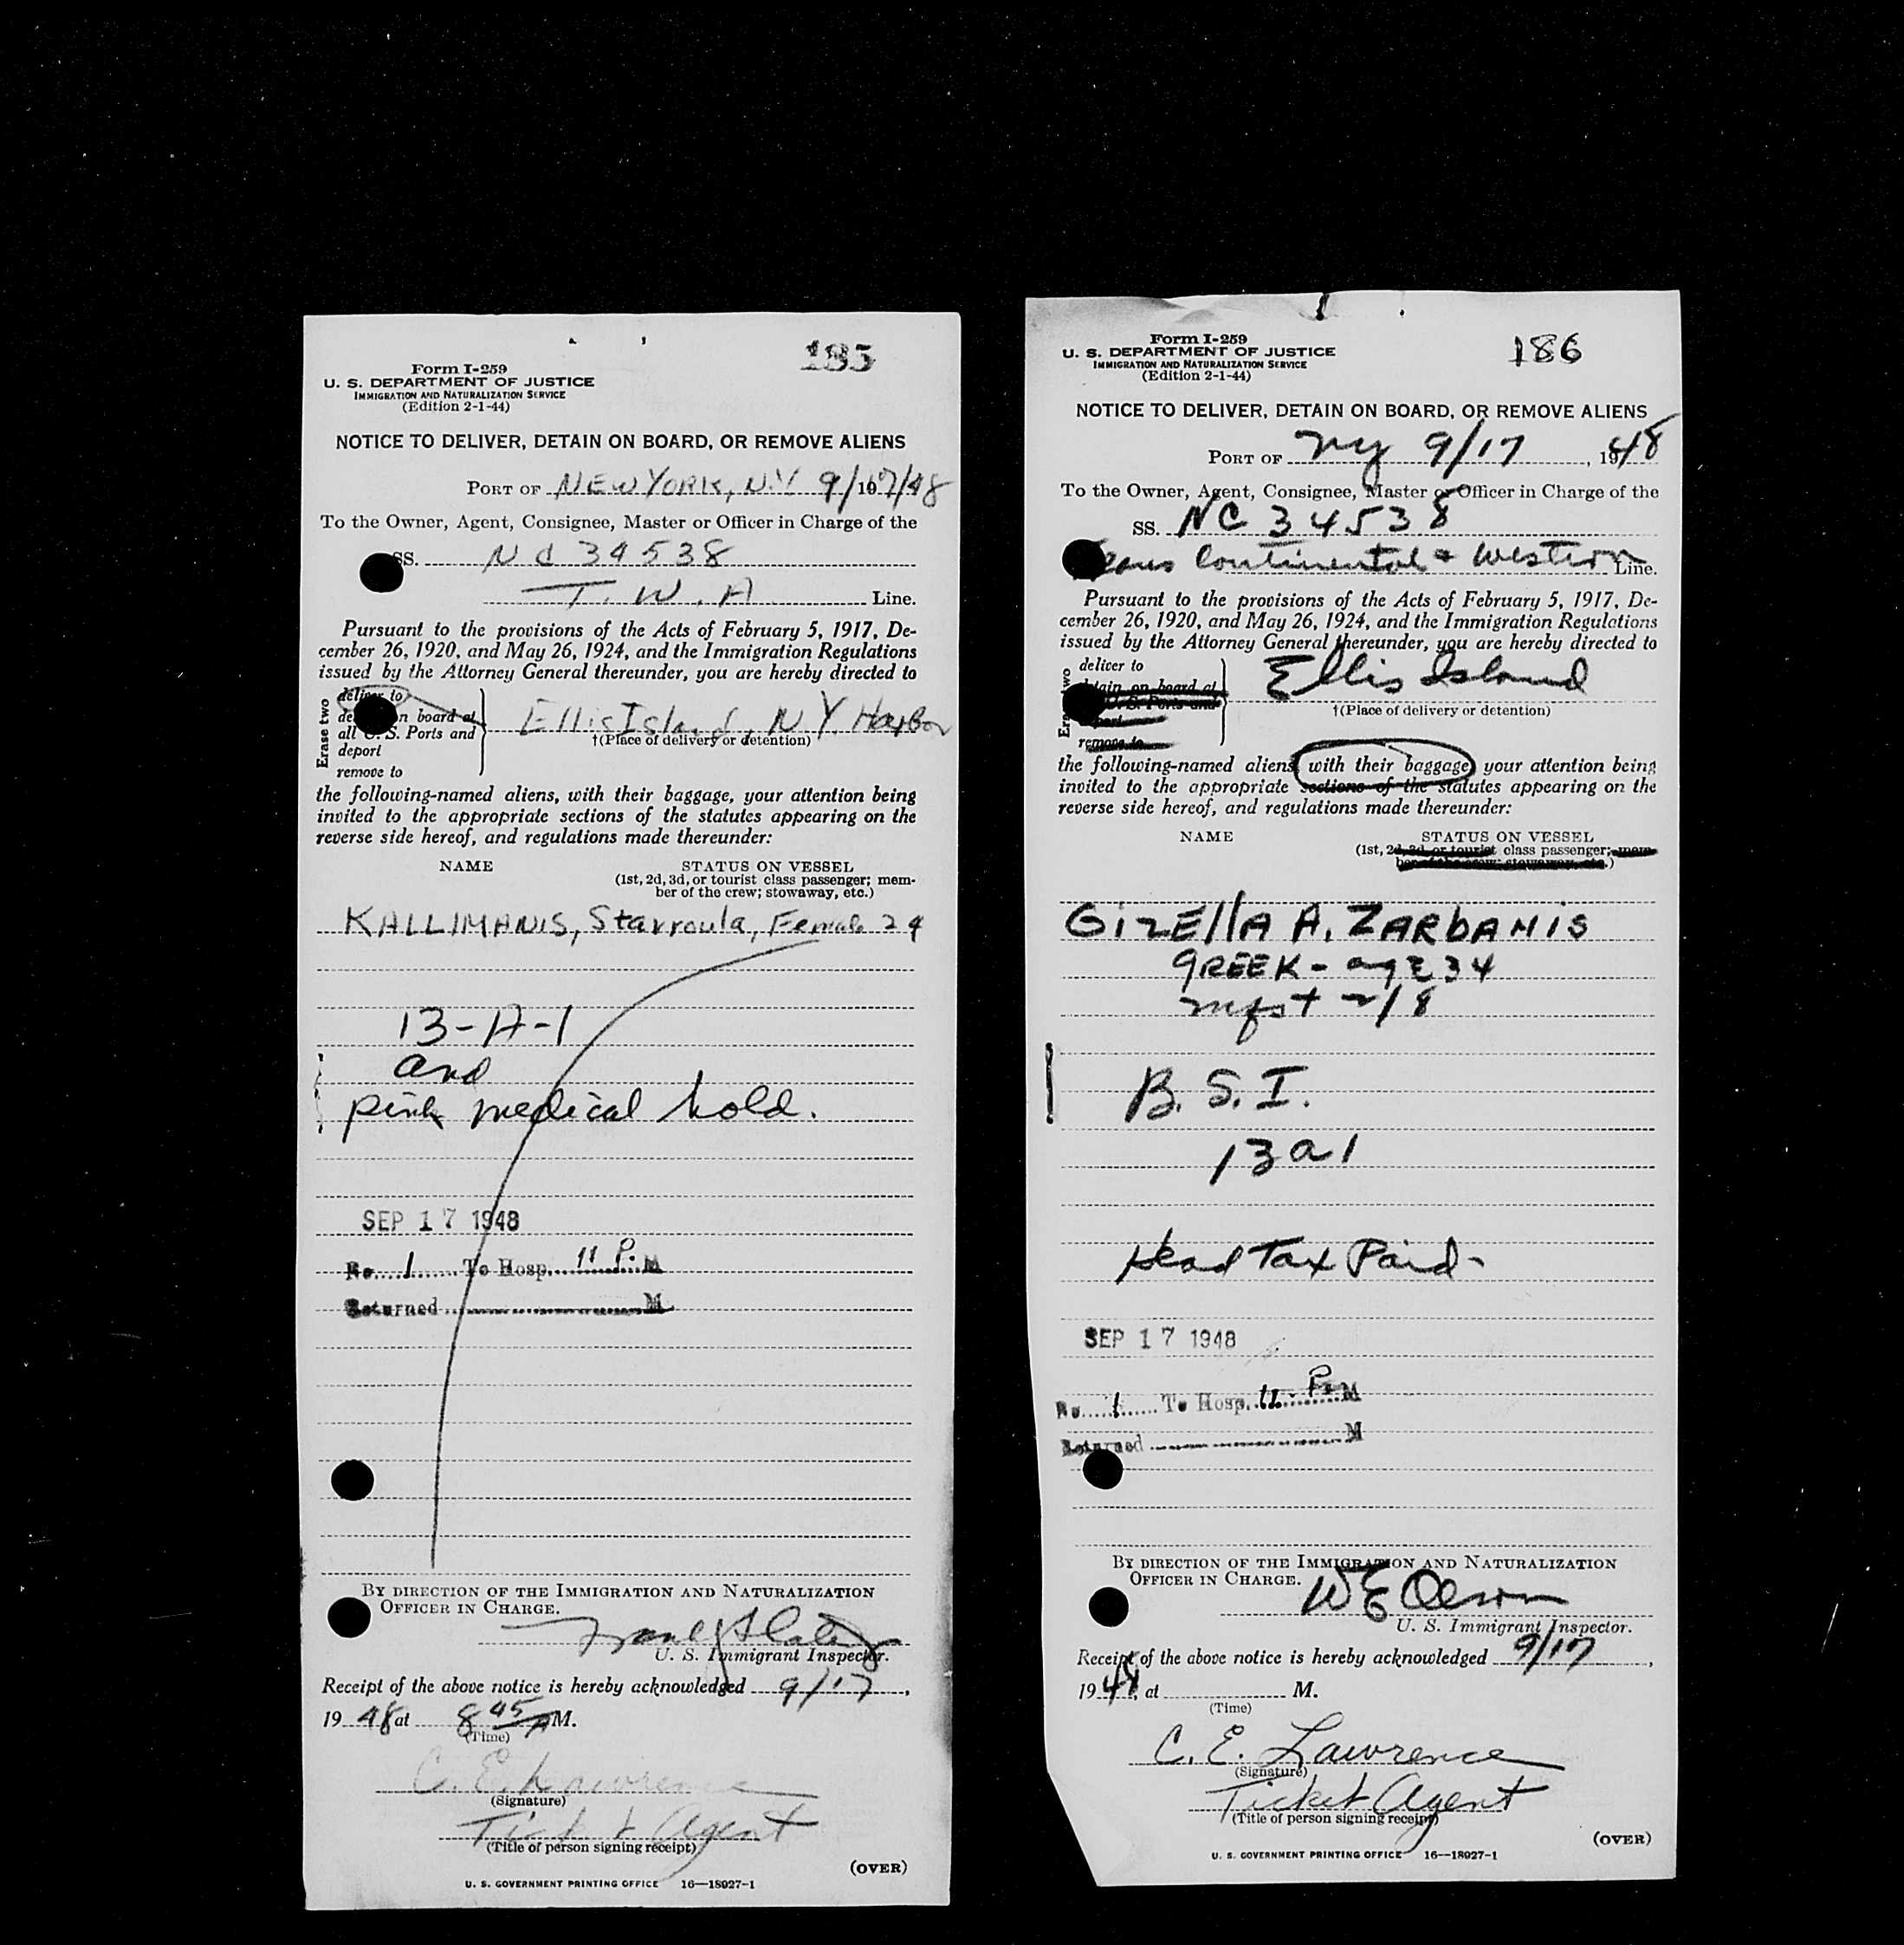 185
Form I-259
U. S. DEPARTMENT OF JUSTICE
IMMIGRATION AND NATURALIZATION SERVICE
(Edition 2-1-44)
NOTICE TO DELIVER, DETAIN ON BOARD, OR REMOVE ALIENS
PORT OF NEW YORK, N.Y 9/17/48
To the Owner, Agent, Consignee, Master or Officer in Charge of the
SS. NC 34538
T. W. A Line.
Pursuant to the provisions of the Acts of February 5, 1917, De-
cember 26, 1920, and May 26, 1924, and the Immigration Regulations
issued by the Attorney General thereunder, you are hereby directed to
Erase two
deliver to
on board at
all U. S. Ports and
deport
remove to
Ellis Island, N Y. Harbor
†(Place of delivery or detention)
the following-named aliens, with their baggage, your attention being
invited to the appropriate sections of the statutes appearing on the
reverse side hereof, and regulations made thereunder:
NAME STATUS ON VESSEL
(1st, 2d, 3d, or tourist class passenger; mem-
ber of the crew; stowaway, etc.)
KALLIMANIS, Stavroula, Female 24
13-A-1
and
pink medical hold.
SEP 17 1948
No. 1 To Hosp. 11 P. M
Returned M
BY DIRECTION OF THE IMMIGRATION AND NATURALIZATION
OFFICER IN CHARGE.
U. S. Immigrant Inspector.
Receipt of the above notice is hereby acknowledged 9/17,
19 48 at 8 45 A M.
(Time)
C. E. Lawrence
(Signature)
Ticket Agent
(Title of person signing receipt)
(OVER)
U. S. GOVERNMENT PRINTING OFFICE 16—18927-1
186
Form I-259
U. S. DEPARTMENT OF JUSTICE
IMMIGRATION AND NATURALIZATION SERVICE
(Edition 2-1-44)
NOTICE TO DELIVER, DETAIN ON BOARD, OR REMOVE ALIENS
PORT OF NY 9/17, 1948
To the Owner, Agent, Consignee, Master or Officer in Charge of the
SS. NC 34538
Continental & Western Line.
Pursuant to the provisions of the Acts of February 5, 1917, De-
cember 26, 1920, and May 26, 1924, and the Immigration Regulations
issued by the Attorney General thereunder, you are hereby directed to
deliver to
on board at
U. S. Ports and
remove to
Ellis Island
†(Place of delivery or detention)
the following-named aliens, with their baggage, your attention being
invited to the appropriate sections of the statutes appearing on the
reverse side hereof, and regulations made thereunder:
NAME STATUS ON VESSEL
(1st, 2d, 3d, or tourist class passenger; mem-
ber of the crew; stowaway, etc.)
GIZEllA A. ZARbANIS
GREEK - age 34
mfst 2/8
B. S. I.
13 a 1
Head Tax Paid -
SEP 17 1948
No. 1 To Hosp. 11 - P. M
Returned M
BY DIRECTION OF THE IMMIGRATION AND NATURALIZATION
OFFICER IN CHARGE.
W E Olson
U. S. Immigrant Inspector.
Receipt of the above notice is hereby acknowledged 9/17,
1948, at M.
(Time)
C. E. Lawrence
(Signature)
Ticket Agent
(Title of person signing receipt)
(OVER)
U. S. GOVERNMENT PRINTING OFFICE 16—18927-1